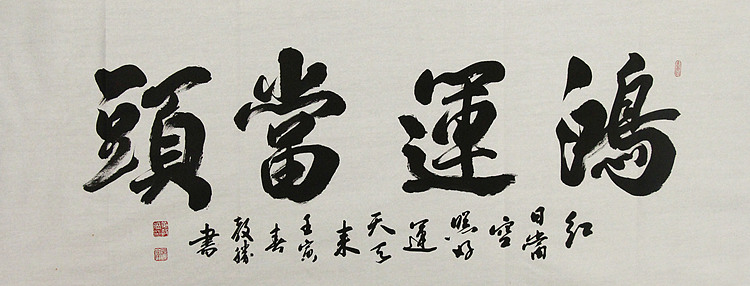 鴻運當頭
紅日當空照好運天天來
壬寅春
書